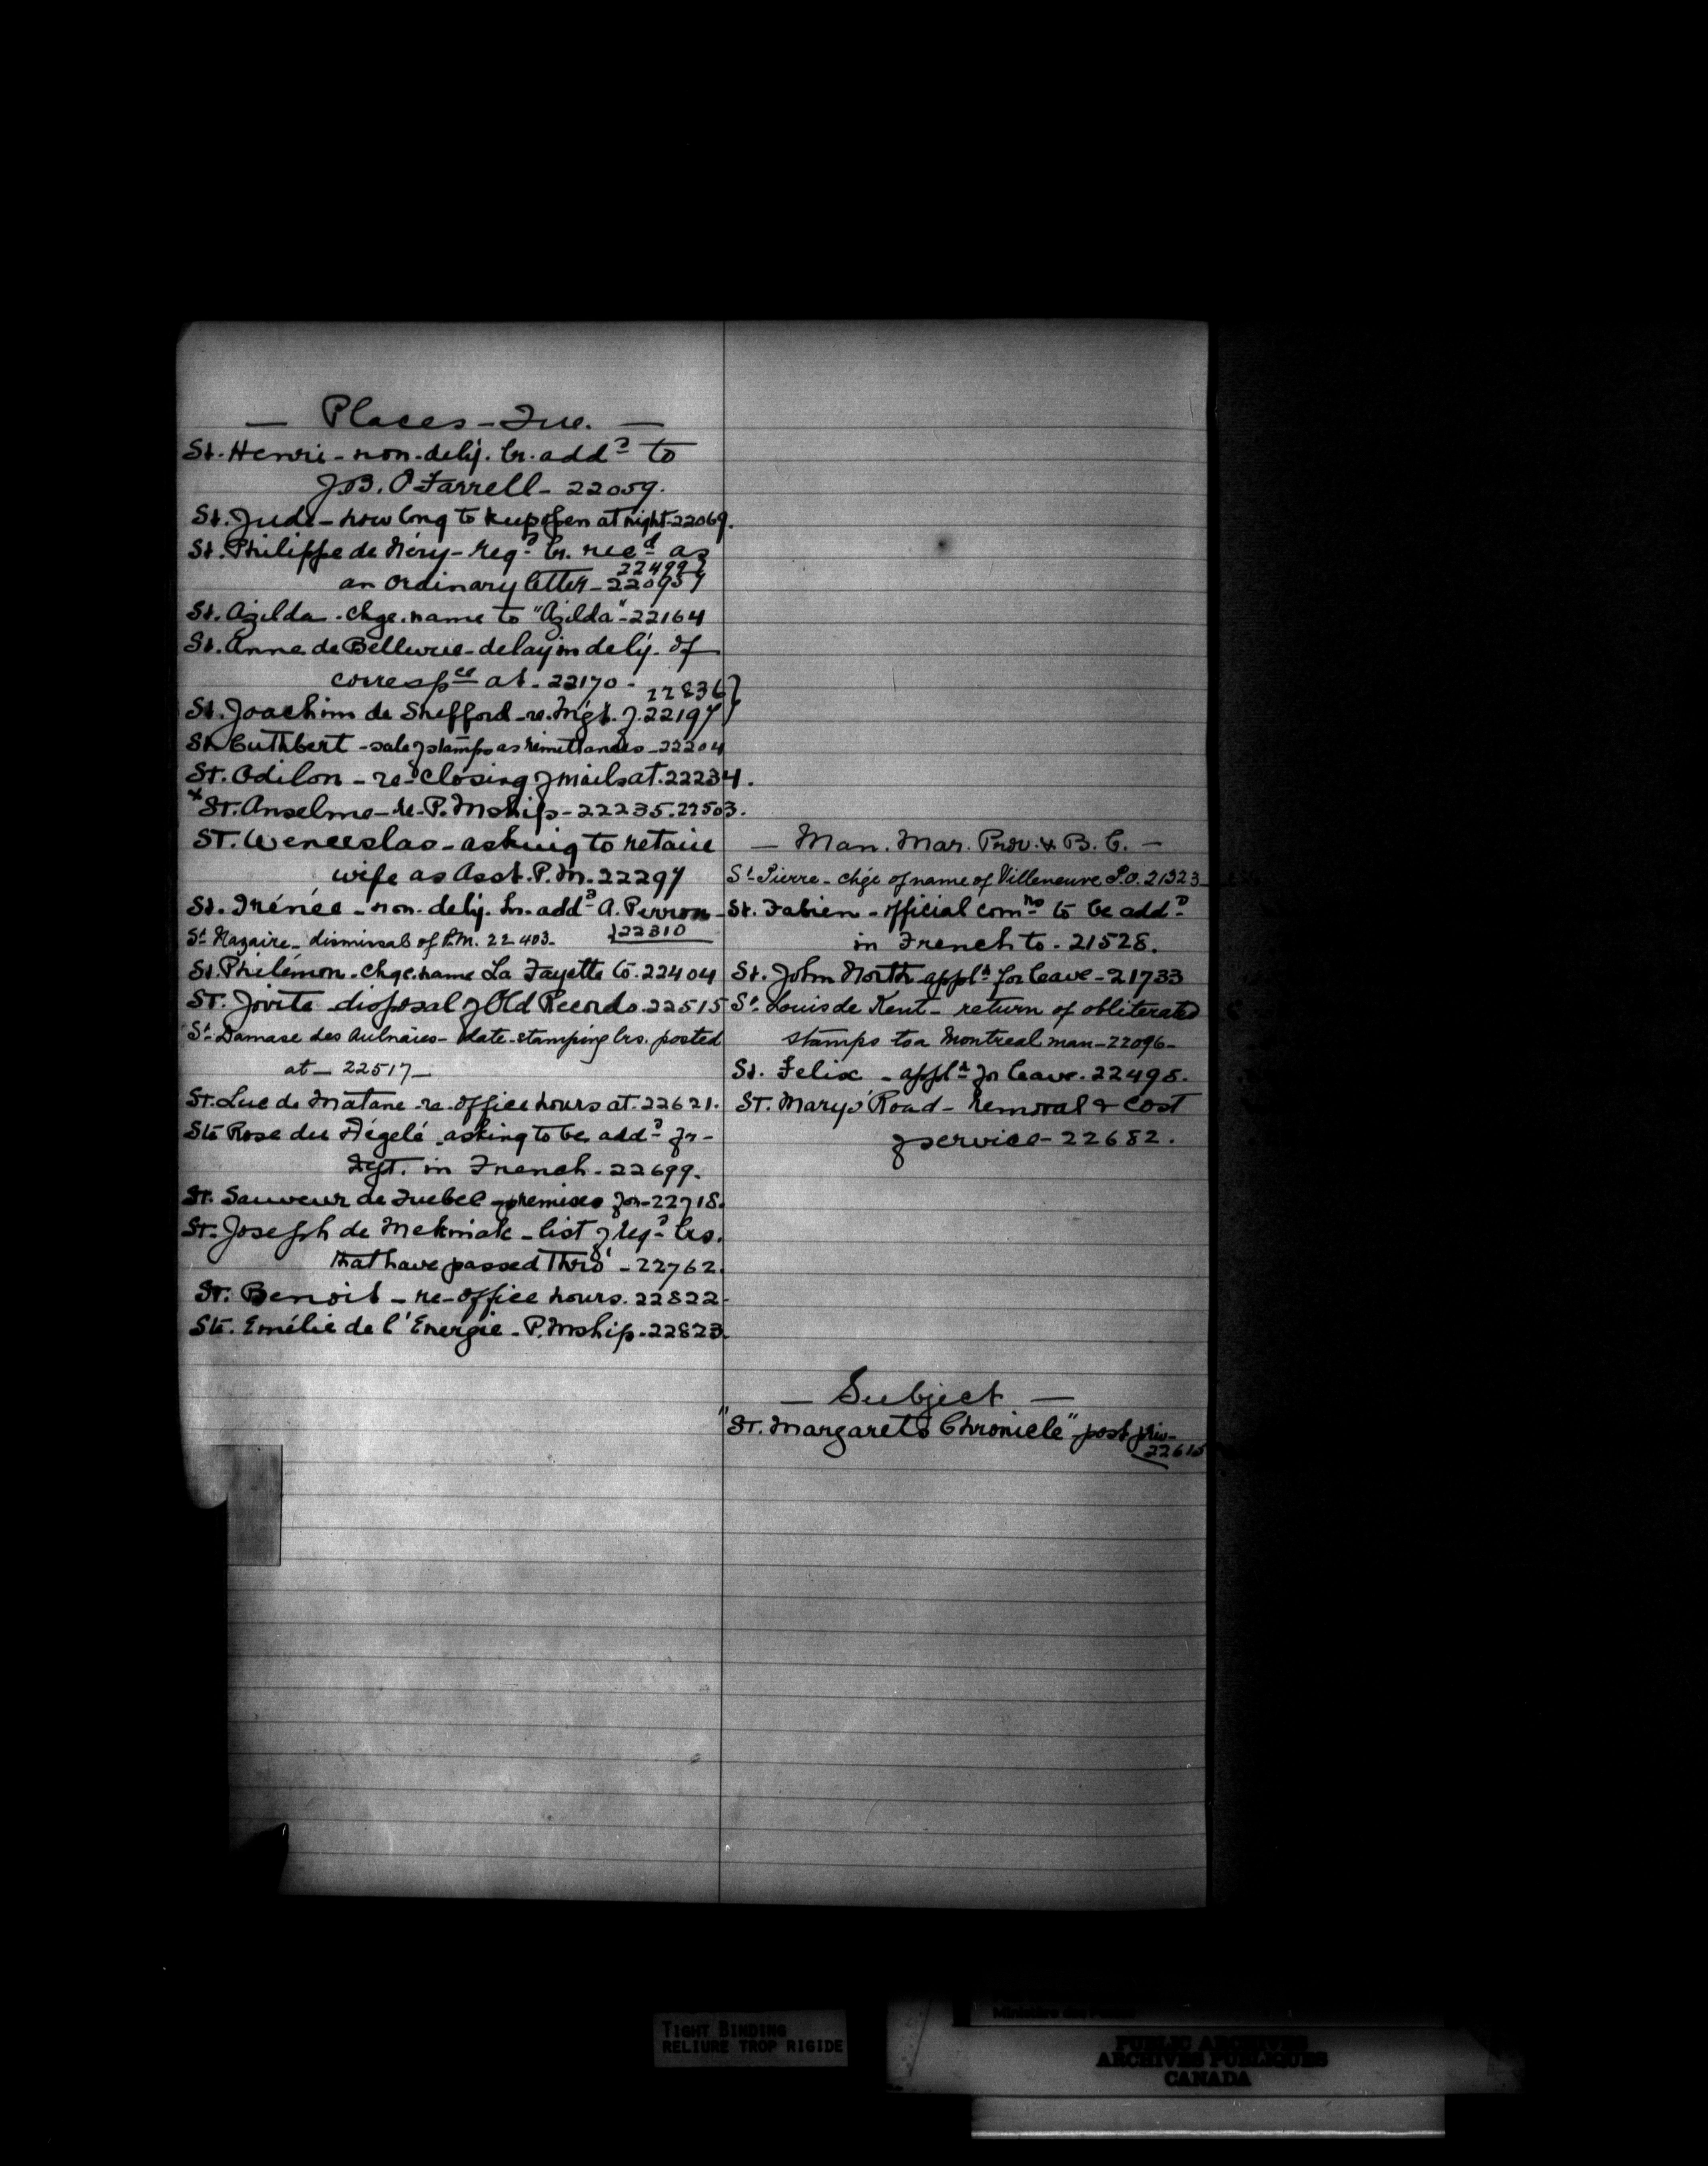 — Places - Que. —
St. Henri - non-dely. lr. addᵈ to
J.B. O'Farrell - 22059.
St. Jude - how long to keep open at night - 22069.
St. Philippe de Néry - regᵈ lr. recᵈ as
22499 }
an ordinary letter - 22095 }
St. Azilda - chge. name to "Azilda" - 22164
St. Anne de Bellevue - delay in dely. of
correspᶜᵉ at - 22170 -
22836 }
St. Joachim de Shefford - re. Mgt. of 22197 }
St. Cuthbert - sale of stamps as remittances - 22204
St. Odilon - re - closing of mails at. 22234.
x St. Anselme - re - P.Mship - 22235. 22503.
St. Wenceslas - asking to retain
wife as Asst. P.M. 22297
St. Irénée - non-dely. lr. addᵈ A. Perron -
22310
Sᵗ Nazaire - dismissal of P.M. 22403 -
St. Philémon - chge. name La Fayette to. 22404
St. Jovite - disposal of Old Records. 22515
Sᵗ Damase des Aulnaies - date-stamping lrs. posted
at - 22517 -
St. Luc de Matane - re - office hours at. 22621.
Ste Rose du Dégelé - asking to be addᵈ fr -
Dept. in French - 22699.
St. Sauveur de Quebec - premises for - 22718.
St. Joseph de Mekinak - list of regᵈ lrs.
that have passed thro' - 22762.
St. Benoit - re - office hours. 22822 -
Ste. Emélie de l'Energie - P.Mship - 22823.
— Man. Mar. Prov. & B.C. —
Sᵗ Pierre - chge of name of Villeneuve P.O. 21323 -
St. Fabien - official comⁿˢ to be addᵈ
in French to - 21528.
St. John North - applⁿ for leave - 21733
Sᵗ Louis de Kent - return of obliterated
stamps to a Montreal man - 22096 -
St. Felix - applⁿ for leave. 22495.
St. Marys' Road - removal & cost
of service - 22682.
— Subject —
"St. Margaret's Chronicle" - post priv -
22615
TIGHT BINDING
RELIURE TROP RIGIDE
PUBLIC ARCHIVES
ARCHIVES PUBLIQUES
CANADA